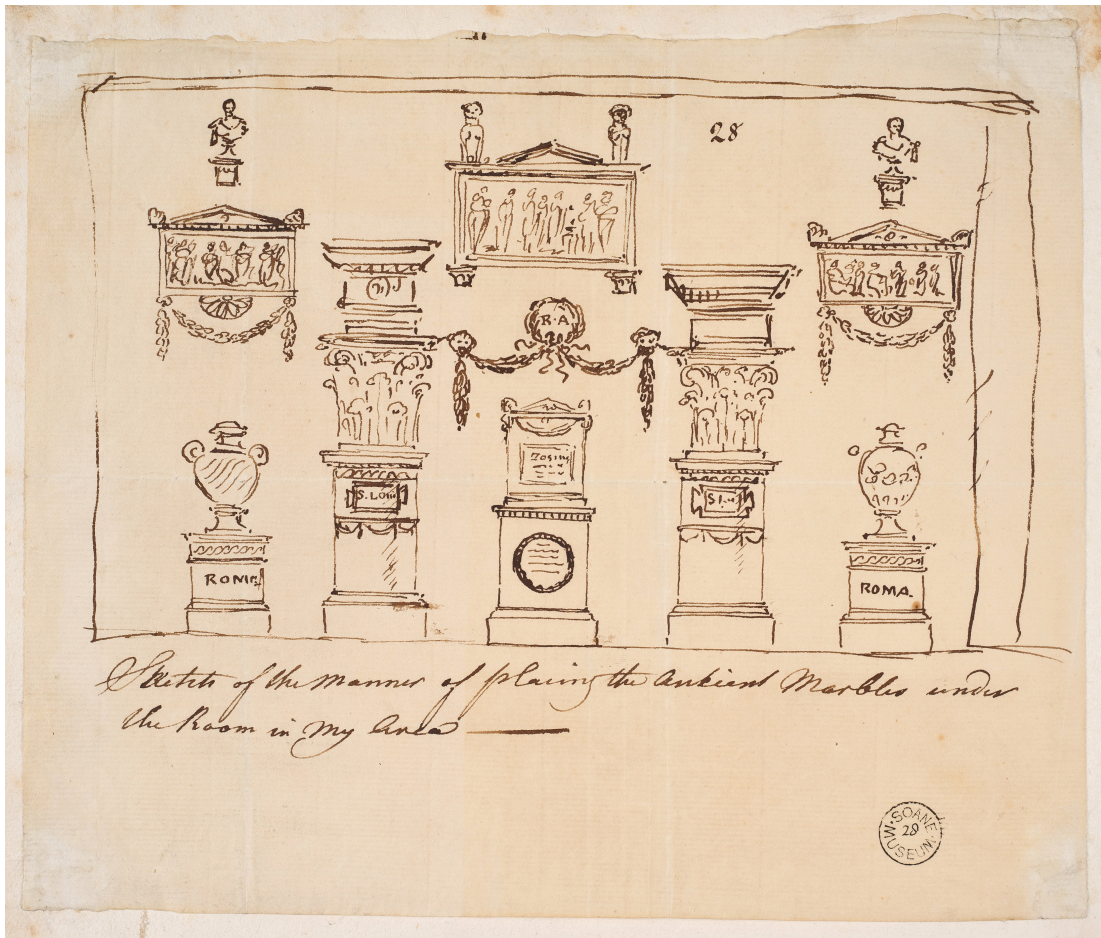 28
R·A
S. LON
ROMA
ROMA.
Sketch of the manner of placing the Ankient Marbles under
the Room in My Area
SOANE MUSEUM
28